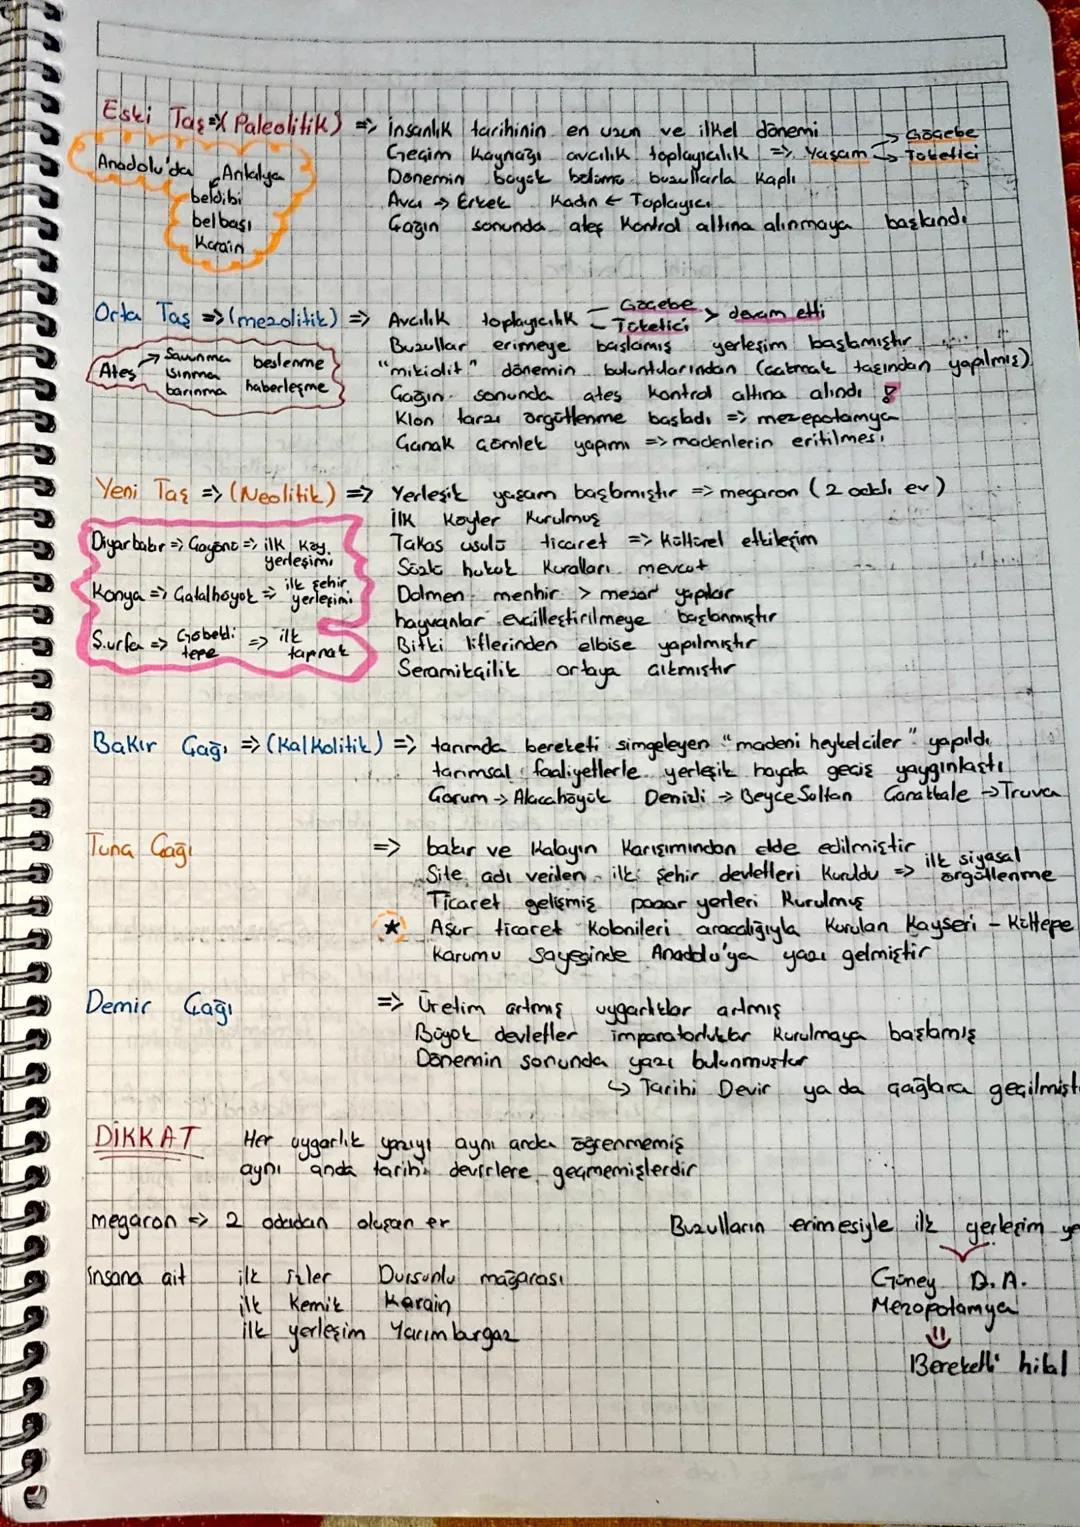 Eski Taş => (Paleolitik) => insanlık tarihinin en uzun ve ilkel dönemi
Geçim kaynağı avcılık toplayıcılık => Yaşam -> Göçebe -> Tüketici
Dönemin büyük bölümü buzullarla kaplı
Avcı -> Erkek Kadın <- Toplayıcı
Çağın sonunda ateş kontrol altına alınmaya başlandı
Anadolu'da Antalya
beldibi
belbaşı
Karain
Orta Taş => (mezolitik) => Avcılık toplayıcılık - Göçebe Tüketici > devam etti
Buzullar erimeye başlamış yerleşim başlamıştır
"mikiolit" dönemin buluntularından (çakmak taşından yapılmış)
Çağın sonunda ateş kontrol altına alındı !
Klan tarzı örgütlenme başladı => mezepotamya
Çanak Çömlek yapımı => madenlerin eritilmesi
Ateş -> Savunma beslenme
ısınma
barınma haberleşme
Yeni Taş => (Neolitik) => Yerleşik yaşam başlamıştır => megaron (2 odalı ev)
İlk Köyler Kurulmuş
Takas usulü ticaret => Kültürel etkileşim
Sözlü hukuk Kuralları mevcut
Dolmen menhir > mezar yapılar
hayvanlar evcilleştirilmeye başlanmıştır
Bitki liflerinden elbise yapılmıştır
Seramikçilik ortaya çıkmıştır
Diyarbakır => Çayönü => ilk köy yerleşimi
Konya => Çatalhöyük => ilk şehir yerleşimi
Ş.urfa => Göbekli tepe => ilk tapınak
Bakır Çağı => (Kalkolitik) => tarımda bereketi simgeleyen "madeni heykelciler" yapıldı
tarımsal faaliyetlerle yerleşik hayata geçiş yaygınlaştı
Çorum -> Alacahöyük Denizli -> BeyceSultan Çanakkale -> Truva
Tunç Çağı => bakır ve Kalayın Karışımından elde edilmiştir
Site adı verilen ilk şehir devletleri Kuruldu => ilk siyasal örgütlenme
Ticaret gelişmiş pazar yerleri Kurulmuş
★ Asur ticaret Kolonileri aracılığıyla Kurulan Kayseri - Kültepe
Karumu sayesinde Anadolu'ya yazı gelmiştir
Demir Çağı => Üretim artmış uygarlıklar artmış
Büyük devletler imparatorluklar Kurulmaya başlamış
Dönemin sonunda yazı bulunmuştur
↳ Tarihi Devir ya da çağlara geçilmişt
DİKKAT Her uygarlık yazıyı aynı anda öğrenmemiş
aynı anda tarihi devirlere geçmemişlerdir
megaron => 2 odadan oluşan ev
Buzulların erimesiyle ilk yerleşim ye
Güney D.A.
Mezopotamya
⇓
Bereketli hilal
insana ait ilk izler Dursunlu mağarası
ilk Kemik Karain
ilk yerleşim Yarımburgaz